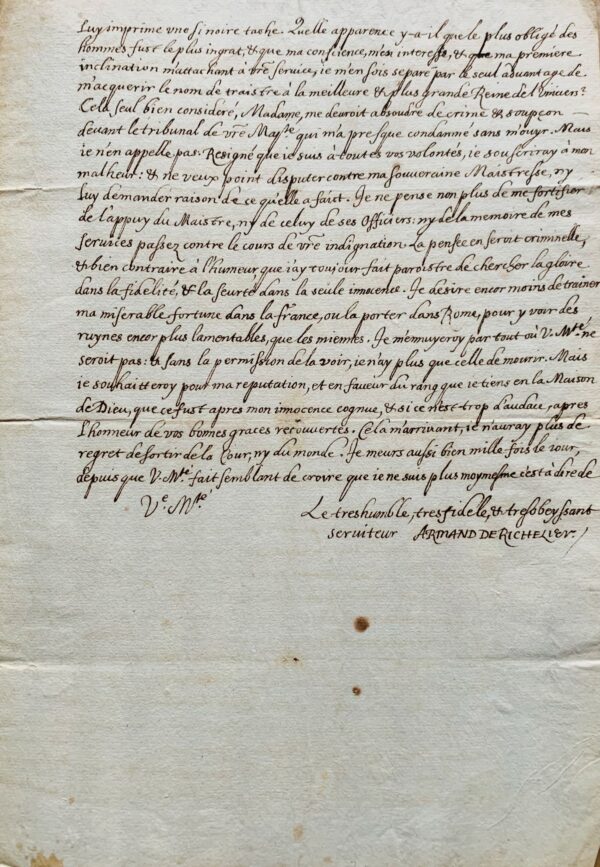 Luy imprime vne si noire tache. Quelle apparence y-a-il que le plus obligé des
hommes fust le plus ingrat, & que ma conscience, mes interests, & que ma premiere
inclination m'attachant à vre service, ie m'en sois separé par le seul aduantage de
m'acquerir le nom de traistre à la meilleure & plus grande Reine de l'univers?
Cela seul bien consideré, Madame, me deuroit absoudre de crime & soupçon
devant le tribunal de vre Maj.te qui m'a presque condamné sans m'ouyr. Mais
ie n'en appelle pas. Resigné que ie suis à toutes vos volontés, ie souscriray à mon
malheur: & ne veux point disputer contre ma souveraine Maistresse, ny
Luy demander raison de ce qu'elle a faict. Je ne pense non plus de me fortifier
de l'appuy du Maistre, ny de celuy de ses Officiers: ny de la memoire de mes
services passez contre le cours de vre indignation. La pensée en seroit criminelle,
& bien contraire à l'humeur que i'ay toujour fait paroistre de chercher la gloire
dans la fidelité, & la seurté dans la seule inocence. Je desire encor moins de trainer
ma miserable fortune dans la france, ou la porter dans Rome, pour y voir des
ruynes encor plus lamentables, que les miennes. Je m'ennuyeroy par tout où V. M.té ne
seroit pas: & sans la permission de la voir, ie n'ay plus que celle de mourir. Mais
ie souhaitteroy pour ma reputation, et en faueur du rang que ie tiens en la Maison
de Dieu, que ce fust apres mon innocence cognue, & si ce n'est trop d'audace, apres
l'honneur de vos bonnes graces recouuertes. Cela m'arrivant, ie n'auray plus de
regret de sortir de la Cour, ny du monde. Je meurs aussi bien mille fois le iour,
depuis que V. M.té fait semblant de croire que ie ne suis plus moymesme c'est à dire de
V.e M.té
Le treshumble, tresfidelle, & tresobeyssant
seruiteur ARMAND DE RICHELIEV.